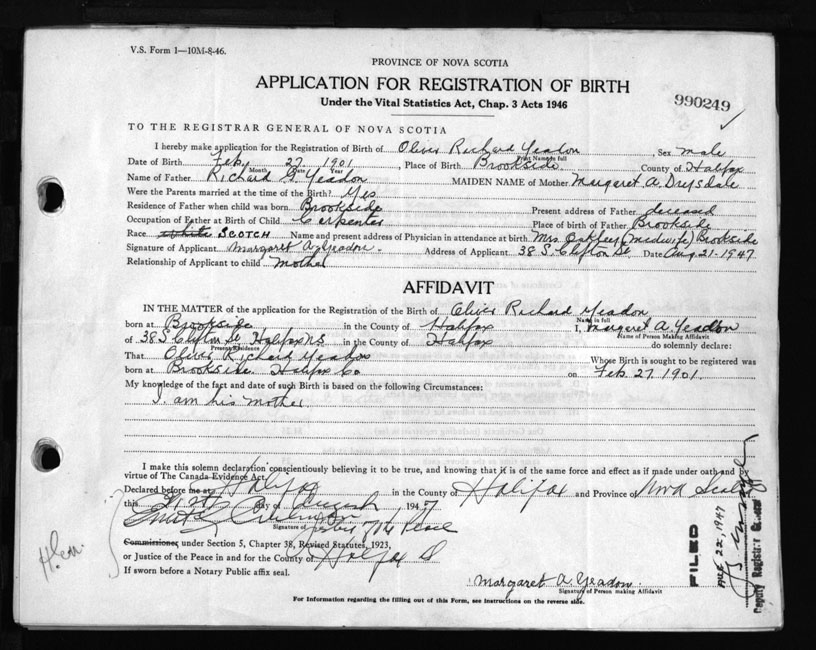 V.S. Form 1—10M-8-46.
PROVINCE OF NOVA SCOTIA
APPLICATION FOR REGISTRATION OF BIRTH
Under the Vital Statistics Act, Chap. 3 Acts 1946
990249
TO THE REGISTRAR GENERAL OF NOVA SCOTIA
I hereby make application for the Registration of Birth of Oliver Richard Yeadon, Sex male
Print Name in full
Date of Birth Feb. 27 1901, Place of Birth Brookside County of Halifax
Month Date Year
Name of Father Richard G. Yeadon MAIDEN NAME of Mother Margaret A. Drysdale
Were the Parents married at the time of the Birth? Yes
Residence of Father when child was born Brookside Present address of Father deceased
Occupation of Father at Birth of Child Carpenter Place of birth of Father Brookside
Race White SCOTCH Name and present address of Physician in attendance at birth Mrs. Oakley (Midwife) Brookside
Signature of Applicant Margaret A. Yeadon. Address of Applicant 38 S. Clifton St. Date Aug 21-1947
Relationship of Applicant to child mother
AFFIDAVIT
IN THE MATTER of the application for the Registration of the Birth of Oliver Richard Yeadon
Name in full
born at Brookside in the County of Halifax I, Margaret A. Yeadon
Name of Person Making Affidavit
of 38 S Clifton St. Halifax N S in the County of Halifax do solemnly declare:
Present Residence
That Oliver Richard Yeadon Whose Birth is sought to be registered was
born at Brookside. Halifax Co on Feb. 27. 1901.
My knowledge of the fact and date of such Birth is based on the following Circumstances:
I am his mother.
I make this solemn declaration conscientiously believing it to be true, and knowing that it is of the same force and effect as if made under oath and
virtue of The Canada Evidence Act.
Declared before me at Halifax in the County of Halifax and Province of Nova Scotia
this 21st day of August 1947
Signature of Justice of the Peace
Commissioner under Section 5, Chapter 38, Revised Statutes, 1923,
or Justice of the Peace in and for the County of Halifax
If sworn before a Notary Public affix seal.
Margaret A. Yeadon.
Signature of Person making Affidavit
For Information regarding the filling out of this Form, see instructions on the reverse side.
FILED
AUG 22, 1947
Deputy Registrar General